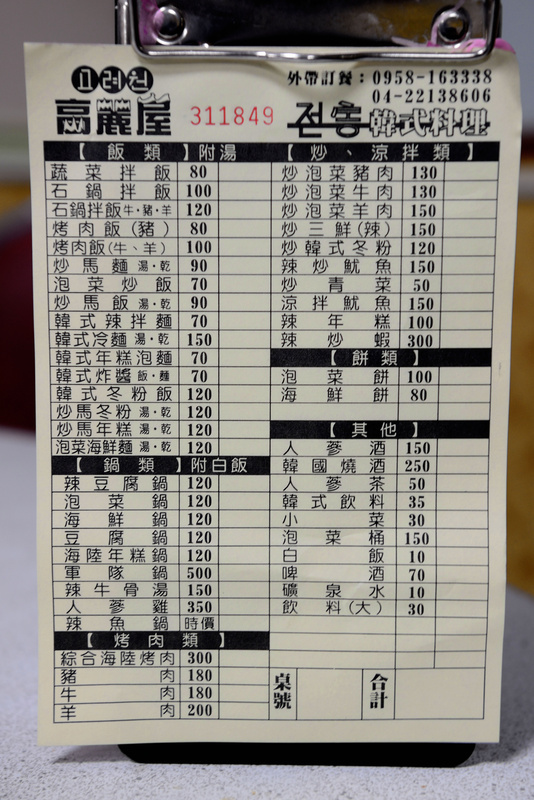 고려원
高麗屋
311849
外帶訂餐：0958-163338
04-22138606
전통 韓式料理
【飯類】附湯
蔬菜拌飯 80
石鍋拌飯 100
石鍋拌飯牛·豬·羊 120
烤肉飯(豬) 80
烤肉飯(牛、羊) 100
炒馬麵 湯·乾 90
泡菜炒飯 70
炒馬飯 湯·乾 90
韓式辣拌麵 70
韓式冷麵 湯·乾 150
韓式年糕泡麵 70
韓式炸醬 飯·麵 70
韓式冬粉飯 120
炒馬冬粉 湯·乾 120
炒馬年糕 湯·乾 120
泡菜海鮮麵 湯·乾 120
【鍋類】附白飯
辣豆腐鍋 120
泡菜鍋 120
海鮮鍋 120
豆腐鍋 120
海陸年糕鍋 120
軍隊鍋 500
辣牛骨湯 150
人蔘雞 350
辣魚鍋 時價
【烤肉類】
綜合海陸烤肉 300
豬肉 180
牛肉 180
羊肉 200
【炒、涼拌類】
炒泡菜豬肉 130
炒泡菜牛肉 130
炒泡菜羊肉 150
炒三鮮(辣) 150
炒韓式冬粉 120
辣炒魷魚 150
炒青菜 50
涼拌魷魚 150
辣年糕 100
辣炒蝦 300
【餅類】
泡菜餅 100
海鮮餅 80
【其他】
人蔘酒 150
韓國燒酒 250
人蔘茶 50
韓式飲料 35
小菜 30
泡菜桶 150
白飯 10
啤酒 70
礦泉水 10
飲料(大) 30
桌號
合計